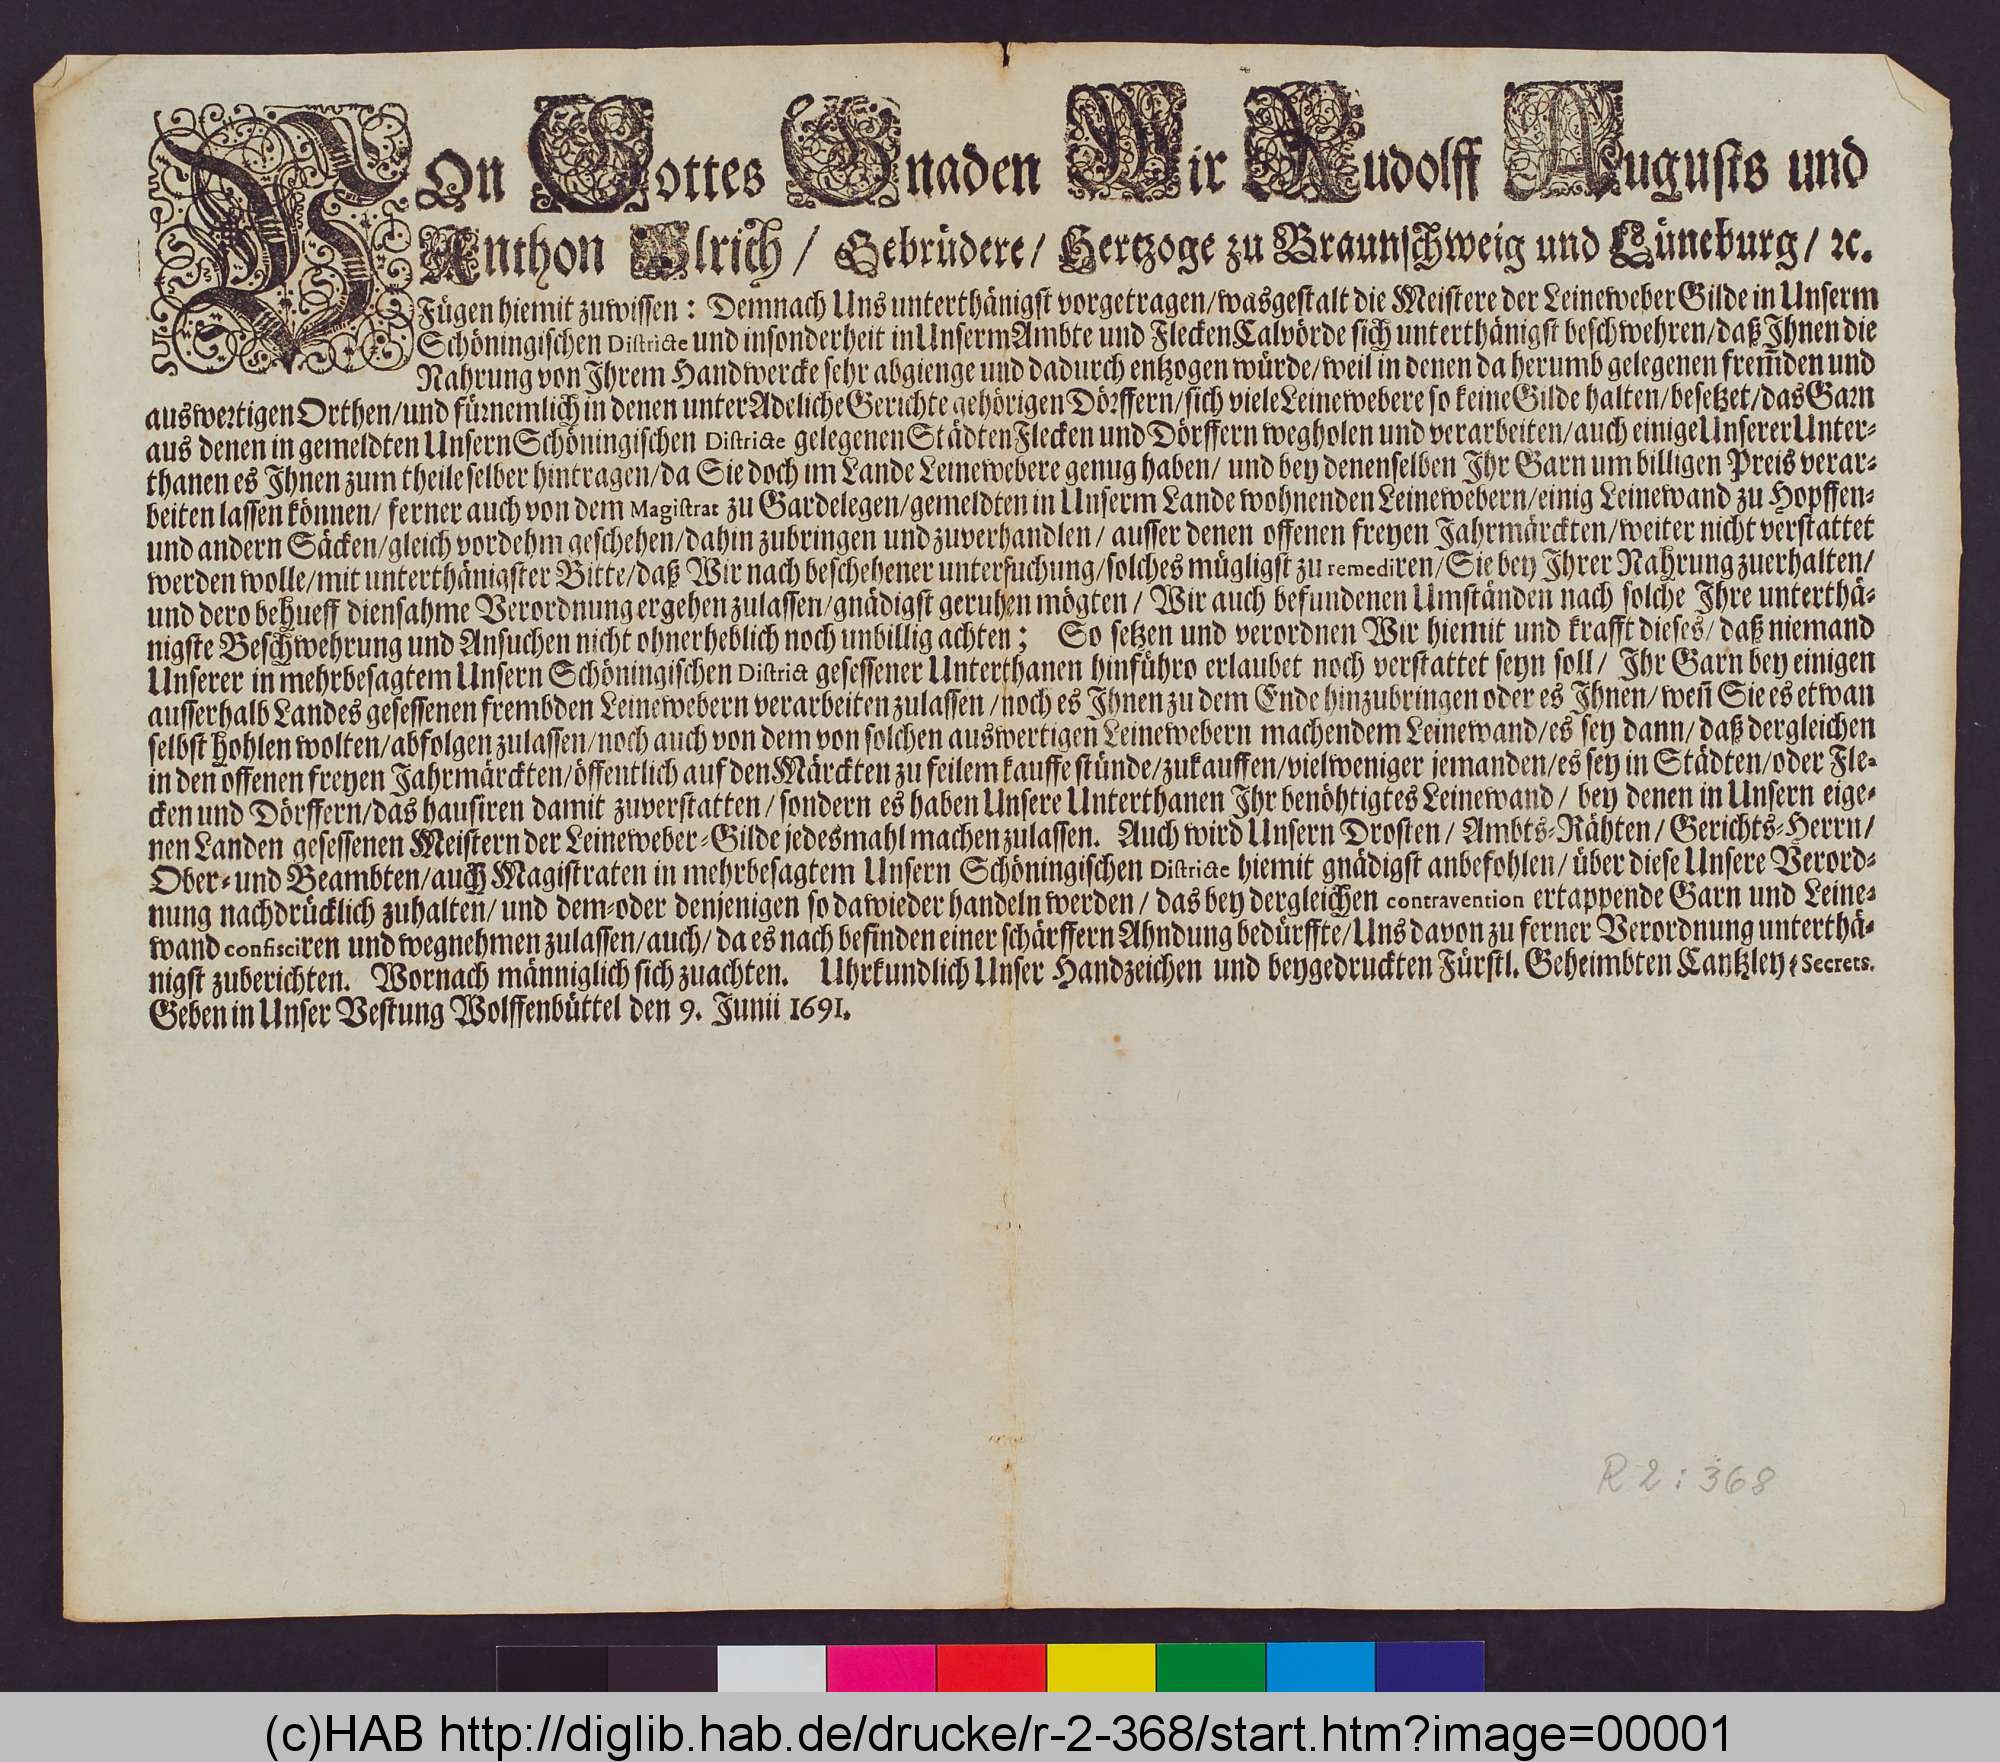 VOn Gottes Gnaden Wir Rudolff Augusts und
Anthon Ulrich / Gebrüdere / Hertzoge zu Braunschweig und Lüneburg / ꝛc.
Fügen hiemit zuwissen: Demnach Uns unterthänigst vorgetragen / wasgestalt die Meistere der Leineweber Gilde in Unserm
Schöningischen Districte und insonderheit in Unserm Ambte und Flecken Calvörde sich unterthänigst beschwehren / daß Ihnen die
Nahrung von Ihrem Handwercke sehr abgienge und dadurch entzogen würde / weil in denen da herumb gelegenen frem̃den und
auswertigen Orthen / und fürnemlich in denen unter Adeliche Gerichte gehörigen Dörffern / sich viele Leinewebere so keine Gilde halten / besetzet / das Garn
aus denen in gemeldten Unsern Schöningischen Districte gelegenen Städten Flecken und Dörffern wegholen und verarbeiten / auch einige Unserer Unter-
thanen es Ihnen zum theile selber hintragen / da Sie doch im Lande Leinewebere genug haben / und bey denenselben Ihr Garn um billigen Preis verar-
beiten lassen können / ferner auch von dem Magistrat zu Gardelegen / gemeldten in Unserm Lande wohnenden Leinewebern / einig Leinewand zu Hopffen-
und andern Säcken / gleich vordehm geschehen / dahin zubringen und zuverhandlen / ausser denen offenen freyen Jahrmärckten / weiter nicht verstattet
werden wolle / mit unterthänigster Bitte / daß Wir nach beschehener untersuchung / solches mügligst zu remediren / Sie bey Ihrer Nahrung zuerhalten /
und dero behueff diensahme Verordnung ergehen zulassen / gnädigst geruhen mögten / Wir auch befundenen Umständen nach solche Ihre unterthä-
nigste Beschwehrung und Ansuchen nicht ohnerheblich noch unbillig achten; So setzen und verordnen Wir hiemit und krafft dieses / daß niemand
Unserer in mehrbesagtem Unsern Schöningischen District gesessener Unterthanen hinführo erlaubet noch verstattet seyn soll / Ihr Garn bey einigen
ausserhalb Landes gesessenen frembden Leinewebern verarbeiten zulassen / noch es Ihnen zu dem Ende hinzubringen oder es Ihnen / weñ Sie es etwan
selbst hohlen wolten / abfolgen zulassen / noch auch von dem von solchen auswertigen Leinewebern machendem Leinewand / es sey dann / daß dergleichen
in den offenen freyen Jahrmärckten / öffentlich auf den Märckten zu feilem kauffe stünde / zukauffen / vielweniger jemanden / es sey in Städten / oder Fle-
cken und Dörffern / das hausiren damit zuverstatten / sondern es haben Unsere Unterthanen Ihr benöhtigtes Leinewand / bey denen in Unsern eige-
nen Landen gesessenen Meistern der Leineweber-Gilde jedesmahl machen zulassen. Auch wird Unsern Drosten / Ambts-Rähten / Gerichts-Herrn /
Ober- und Beambten / auch Magistraten in mehrbesagtem Unsern Schöningischen Districte hiemit gnädigst anbefohlen / über diese Unsere Verord-
nung nachdrücklich zuhalten / und dem- oder denjenigen so dawieder handeln werden / das bey dergleichen contravention ertappende Garn und Leine-
wand confisciren und wegnehmen zulassen / auch / da es nach befinden einer schärffern Ahndung bedürffte / Uns davon zu ferner Verordnung unterthä-
nigst zuberichten. Wornach männiglich sich zuachten. Uhrkundlich Unser Handzeichen und beygedruckten Fürstl. Geheimbten Cantzley-Secrets.
Geben in Unser Vestung Wolffenbüttel den 9. Junii 1691.
R 2 : 368
(c)HAB http://diglib.hab.de/drucke/r-2-368/start.htm?image=00001